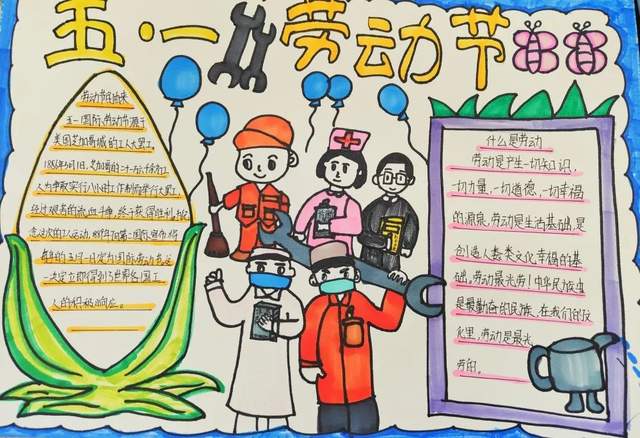 五·一劳动节
劳动节的由来
五一国际劳动节源于
美国芝加哥城的工人大罢工
1886年5月1日,芝加哥的二十一万六千余名工
人为争取实行八小时工作制而举行大罢工
经过艰苦的流血斗争,终于获得胜利,纪
念这次的工人运动,1889年7月第二国际宣布将
每年的五月一日定为国际劳动节,这
一决定立即得到了世界各国工
人的积极响应。
什么是劳动
劳动是产生一切知识
一切力量,一切道德,一切幸福
的源泉,劳动是生活基础,是
创造人类文化幸福的基
础,劳动最光荣!中华民族
是最勤奋的民族,在我们的
里,劳动是最光
荣的。